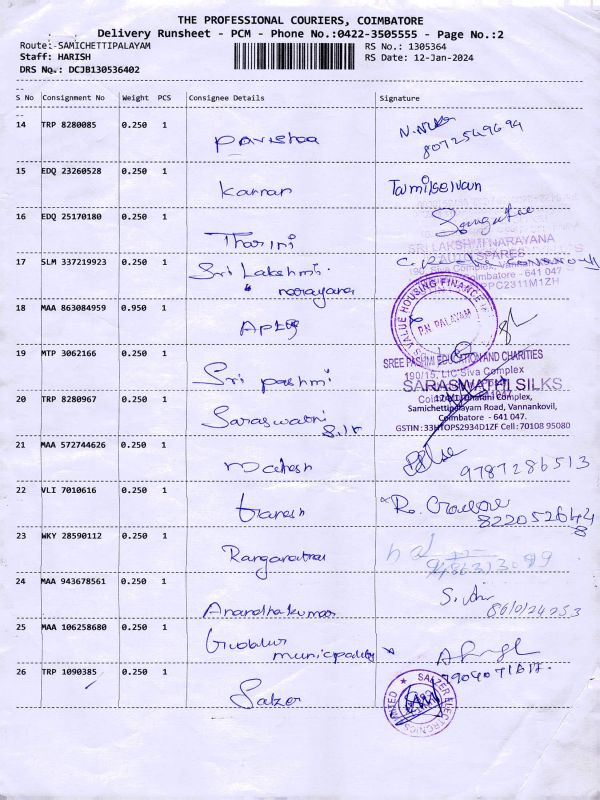 THE PROFESSIONAL COURIERS, COIMBATORE
Delivery Runsheet - PCM - Phone No.:0422-3505555 - Page No.:2
Route:-SAMICHETTIPALAYAM
RS No.: 1305364
Staff: HARISH
RS Date: 12-Jan-2024
DRS No.: DCJB130536402
S No Consignment No Weight PCS Consignee Details Signature
14 TRP 8280085 0.250 1
8072549694
15 EDQ 23260528 0.250 1
Kannan Tamilselvan
16 EDQ 25170180 0.250 1
Tharini
SRI LAKSHMI NARAYANA
AUTO SPARES
17 SLM 337219923 0.250 1 Sri Lakshmi
narayana
Coimbatore - 641 047
18 MAA 863084959 0.950 1
VALUE HOUSING FINANCE
P.N. PALAYAM
19 MTP 3062166 0.250 1
SREE PASHMI EDUCATION AND CHARITIES
190/15, LIC Siva Complex
Sri pashmi
SARASWATHI SILKS
20 TRP 8280967 0.250 1
Complex,
Samichettipalayam Road, Vannankovil,
Coimbatore - 641 047.
GSTIN : 33 Cell : 70108 95080
Saraswathi
Silk
21 MAA 572744626 0.250 1
Mahesh 9787286513
22 VLI 7010616 0.250 1
Ganesh
23 WKY 28590112 0.250 1
24 MAA 943678561 0.250 1
Anandhakumar
25 MAA 106258680 0.250 1
Gudalur
municipality
26 TRP 1090385 0.250 1
SALZER ELECTRONICS LIMITED
Salzer